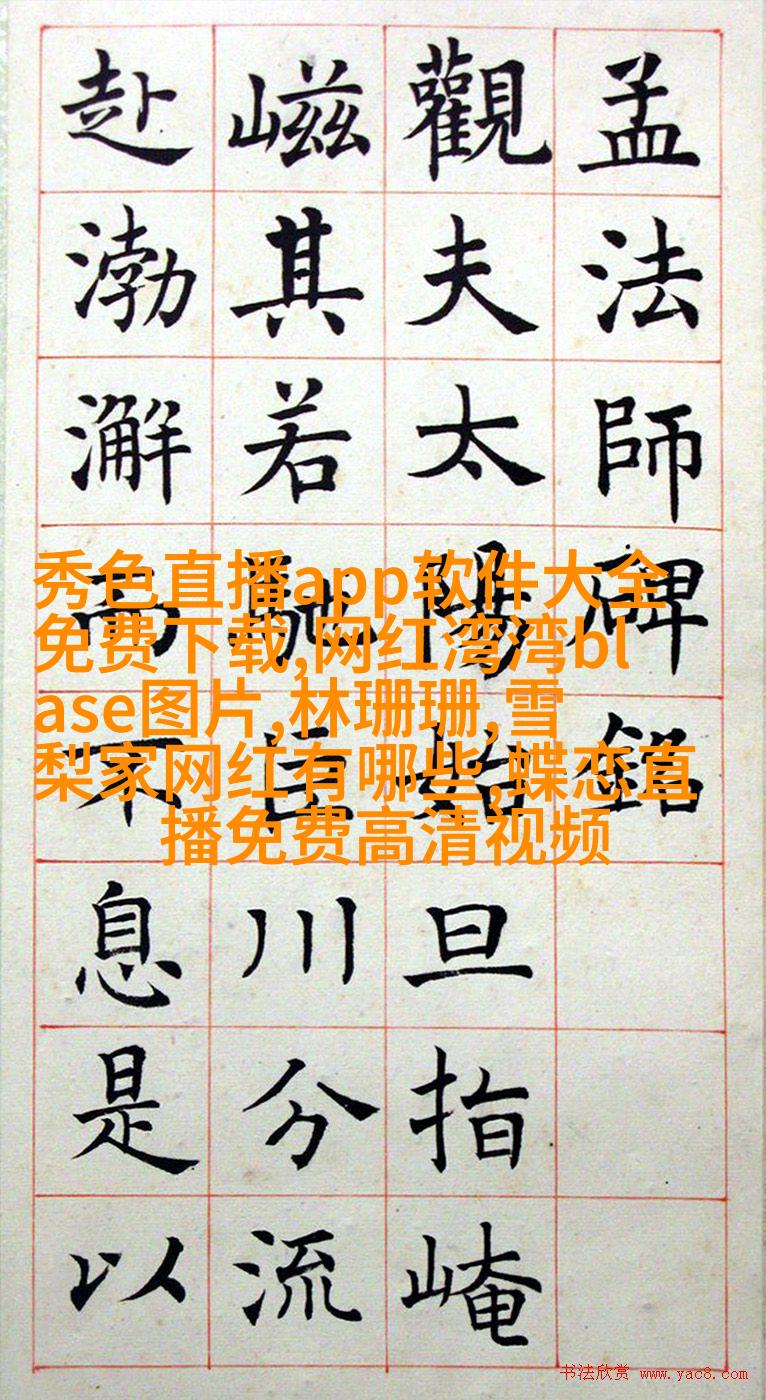 孟法師碑銘
觀夫太陽始旦指崦
嵫其若馳巨川分流
赴渤澥而不息是以
秀色直播app软件大全
免费下载,网红湾湾bl
ase图片,林珊珊,雪
梨家网红有哪些,蝶恋直
播免费高清视频
书法欣赏 www.yac8.com